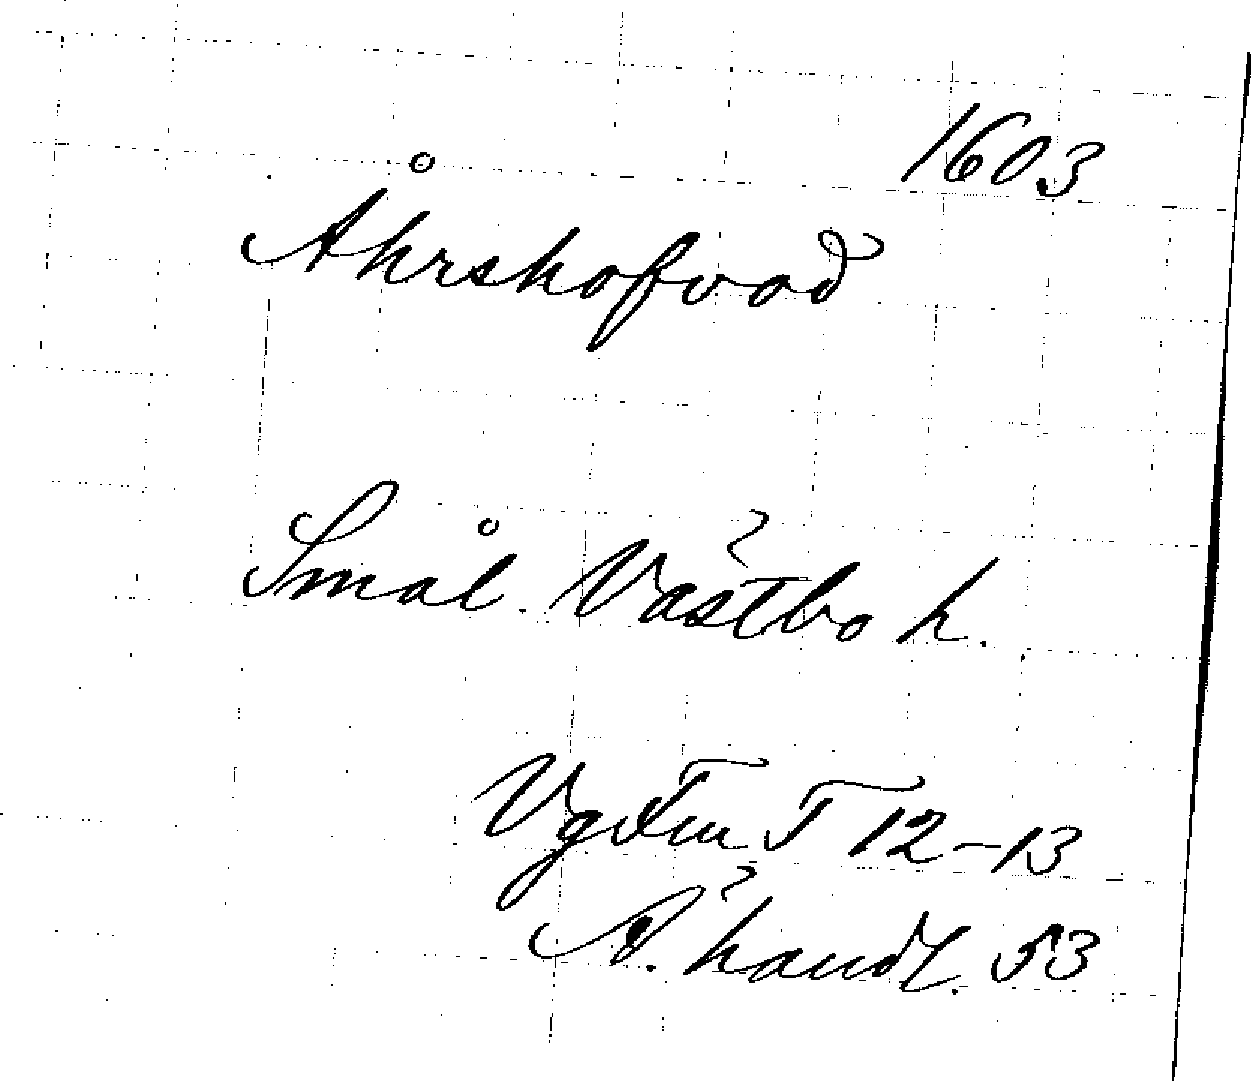 1603
Åhrshofvad
Smål. Västbo h.
VgFmT 12-13
Ä. handl. 53